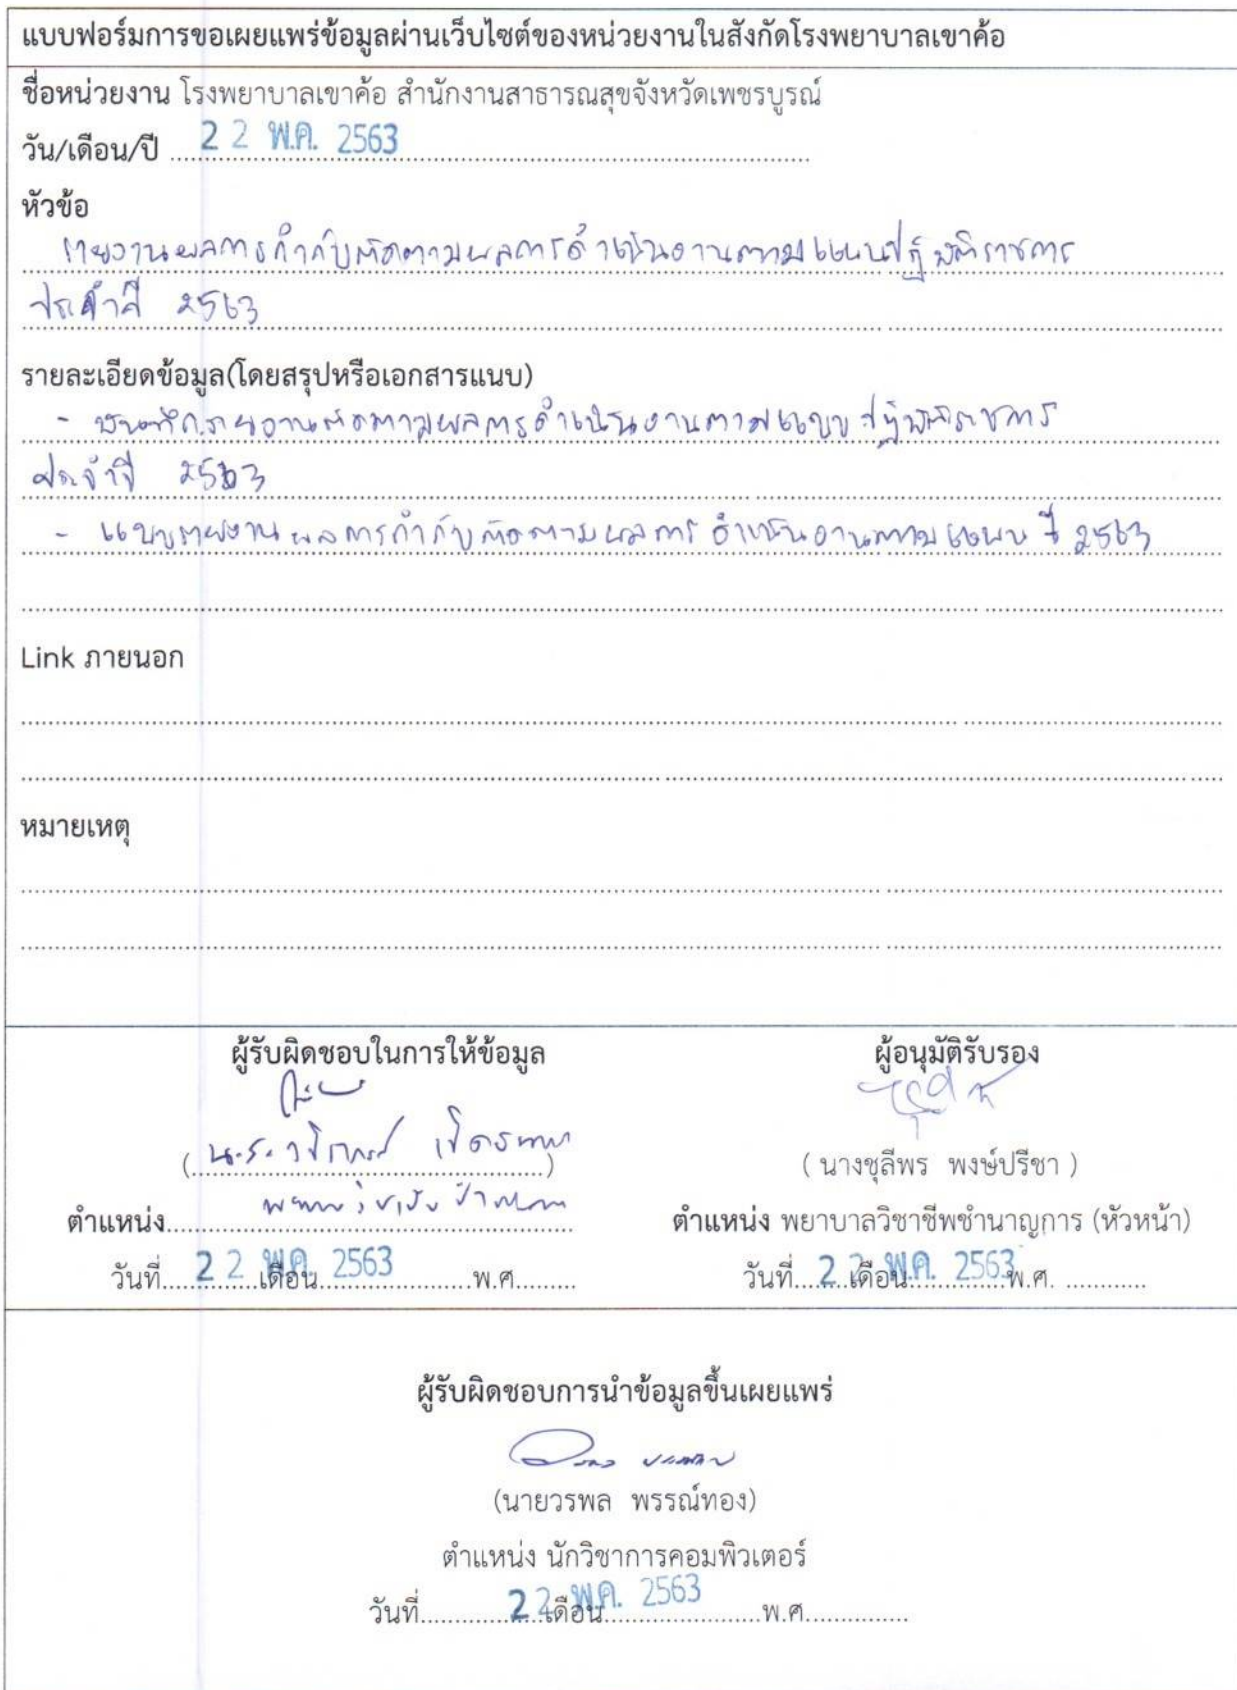 แบบฟอร์มการขอเผยแพร่ข้อมูลผ่านเว็บไซต์ของหน่วยงานในสังกัดโรงพยาบาลเขาค้อ
ชื่อหน่วยงาน โรงพยาบาลเขาค้อ สำนักงานสาธารณสุขจังหวัดเพชรบูรณ์
วัน/เดือน/ปี 22 พ.ค. 2563
หัวข้อ
รายงานผลการกำกับติดตามผลการดำเนินงานตามแผนปฏิบัติราชการ
ประจำปี 2563
รายละเอียดข้อมูล(โดยสรุปหรือเอกสารแนบ)
- บันทึกรายงานติดตามผลการดำเนินงานตามแบบปฏิบัติราชการ
ประจำปี 2563
- แบบรายงานผลการกำกับติดตามผลการดำเนินงานตามแผน ปี 2563
Link ภายนอก
หมายเหตุ
ผู้รับผิดชอบในการให้ข้อมูล ผู้อนุมัติรับรอง
( นางชุลีพร พงษ์ปรีชา )
ตำแหน่ง พยาบาลวิชาชีพชำนาญการ ตำแหน่ง พยาบาลวิชาชีพชำนาญการ (หัวหน้า)
วันที่ 22 เดือน พ.ค. 2563 พ.ศ. วันที่ 22 เดือน พ.ค. 2563 พ.ศ.
ผู้รับผิดชอบการนำข้อมูลขึ้นเผยแพร่
(นายวรพล พรรณ์ทอง)
ตำแหน่ง นักวิชาการคอมพิวเตอร์
วันที่ 22 เดือน พ.ค. 2563 พ.ศ.